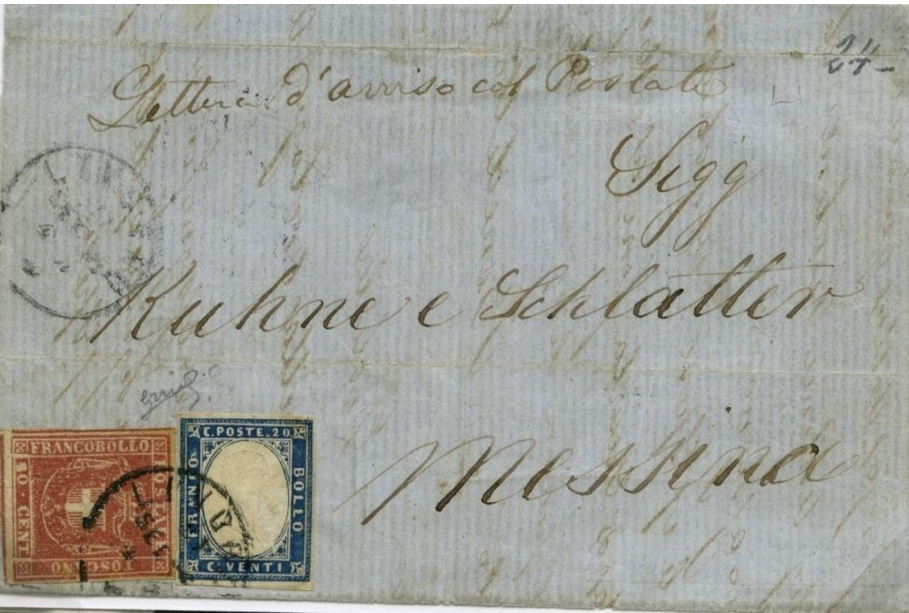 24-
Lettera d'avviso col Postale
Sigg
Kuhne e Schlatter
Messina
FRANCOBOLLO
POSTALE
TOSCANO
40 CENT
C. POSTE. 20
FRANCO
BOLLO
C. VENTI